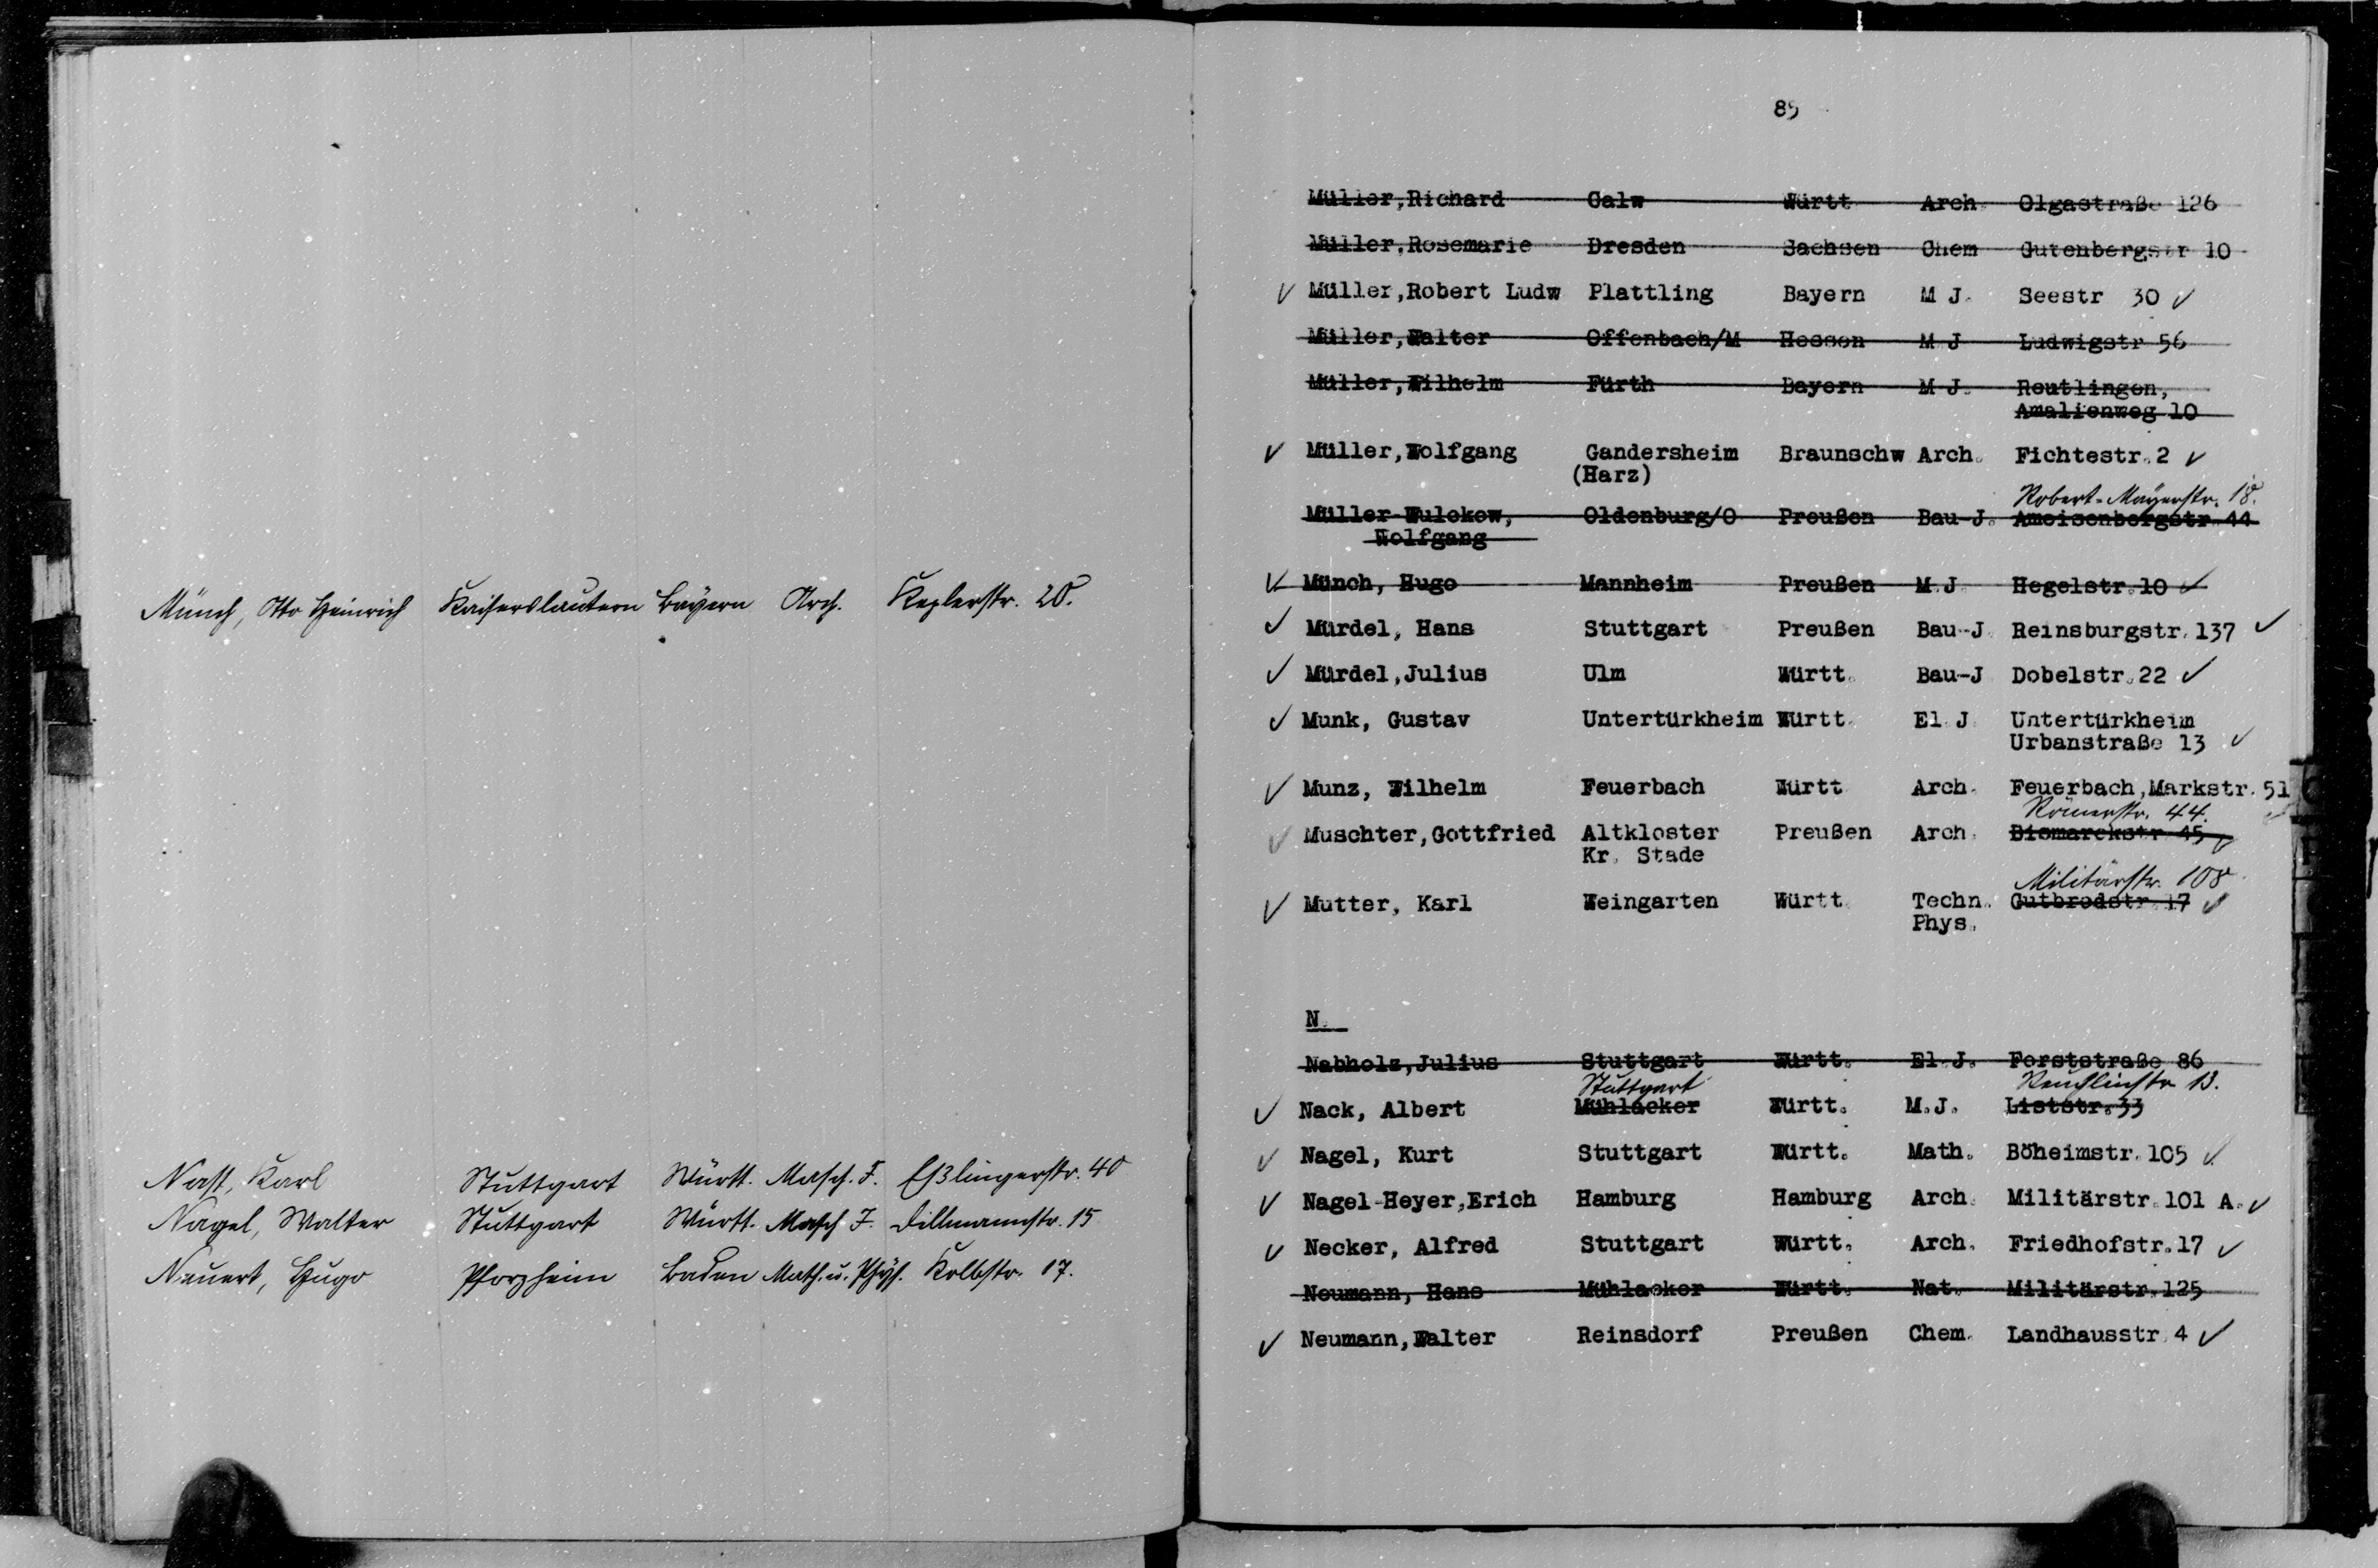 Münch, Otto Heinrich Kaiserslautern Bayern Arch. Keplerstr. 20.
Nast, Karl Stuttgart Württ. Masch. I. Eßlingerstr. 40
Nagel, Walter Stuttgart Württ. Masch. I. Dillmannstr. 15
Nauert, Hugo Pforzheim Baden Math. u. Phys. Kolbstr. 17.
89
Müller,Richard Calw Württ Arch. Olgastraße 126
Müller,Rosemarie Dresden Sachsen Chem Gutenbergstr 10
Müller,Robert Ludw Plattling Bayern M J. Seestr 30
Müller,Walter Offenbach/M Hessen M J Ludwigstr 56
Müller,Wilhelm Fürth Bayern M J. Reutlingen,
Amalienweg 10
Müller,Wolfgang Gandersheim Braunschw Arch. Fichtestr. 2
(Harz)
Robert-Mayerstr. 18.
Müller-Wulckow, Oldenburg/O Preußen Bau-J. Ameisenbergstr 44
Wolfgang
Münch, Hugo Mannheim Preußen M.J. Hegelstr. 10
Mürdel, Hans Stuttgart Preußen Bau-J. Reinsburgstr. 137
Mürdel,Julius Ulm Württ. Bau-J Dobelstr. 22
Munk, Gustav Untertürkheim Württ. El J Untertürkheim
Urbanstraße 13
Munz, Wilhelm Feuerbach Württ Arch. Feuerbach,Markstr. 51
Römerstr. 44.
Muschter,Gottfried Altkloster Preußen Arch. Bismarckstr 45
Kr. Stade
Militärstr. 108
Mutter, Karl Weingarten Württ. Techn. Gutbrodstr. 17
Phys.
N.
Nabholz,Julius Stuttgart Württ. El.J. Forststraße 86
Stuttgart Reuchlinstr 13.
Nack, Albert Mühlacker Württ. M.J. Liststr. 33
Nagel, Kurt Stuttgart Württ. Math. Böheimstr. 105
Nagel-Heyer,Erich Hamburg Hamburg Arch. Militärstr. 101 A.
Necker, Alfred Stuttgart Württ. Arch. Friedhofstr. 17
Neumann, Hans Mühlacker Württ. Nat. Militärstr. 125
Neumann,Walter Reinsdorf Preußen Chem. Landhausstr 4